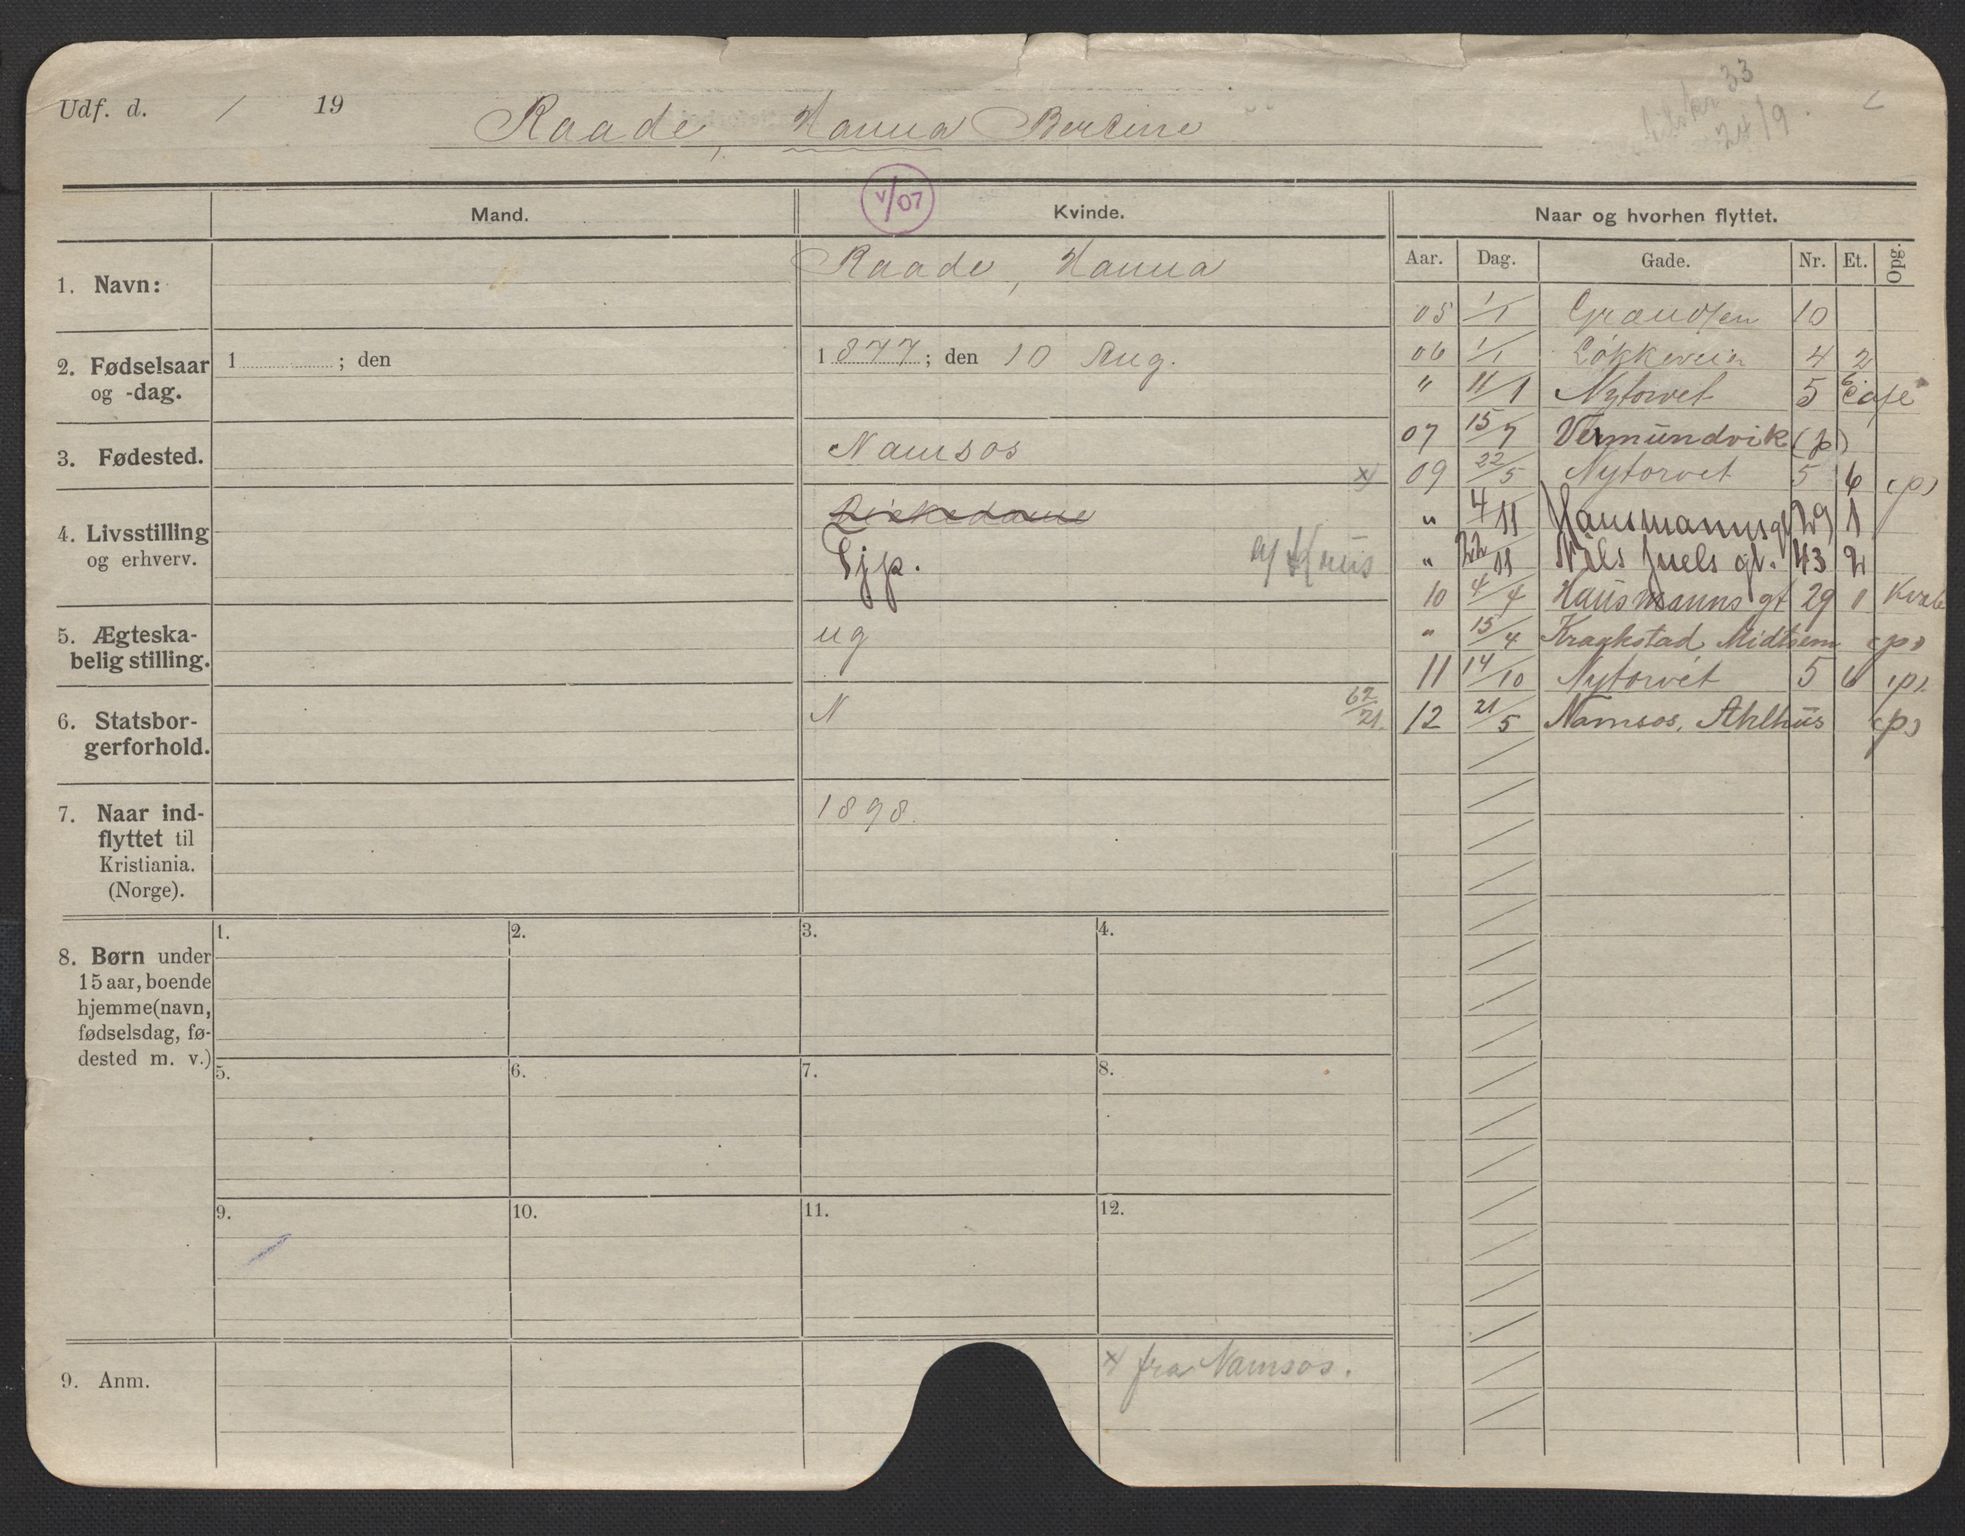 Udf. d. / 19 Raade, Hanna Bertine
33
24/9.
Mand.
V/07
Kvinde.
Naar og hvorhen flyttet.
Aar. Dag. Gade. Nr. Et. Opg.
1. Navn:
Raade, Hanna
2. Fødselsaar
og -dag.
1 ; den
1877; den 10 Aug.
3. Fødested.
Namsos
4. Livsstilling
og erhverv.
Tjp.
5. Ægteska-
belig stilling.
ug
6. Statsbor-
gerforhold.
N
62/21.
7. Naar ind-
flyttet til
Kristiania.
(Norge).
1898.
05 1/1 Grændsen 10
06 1/1 Løkkeveien 4 2
" 11/1 Nytorvet 5 Cafe
07 15/7 Vemundvik (p)
x) 09 22/5 Nytorvet 5 6 (p)
" 4/11 Hausmannsgt 29 1
" 22/11 Niels Juels gt. 43 2
10 4/4 Hausmanns gt 29 1 Kvale
" 15/4 Kragkstad, Midtsem (p)
11 14/10 Nytorvet 5 6 (p)
12 21/5 Namsos, Ahlhus (p)
8. Børn under
15 aar, boende
hjemme (navn,
fødselsdag, fø-
dested m. v.)
1. 2. 3. 4.
5. 6. 7. 8.
9. 10. 11. 12.
9. Anm.
x) fra Namsos.